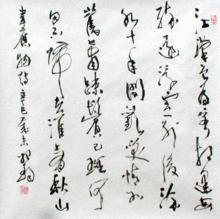 江漢曾為客相逢每
醉還浮雲一別後流
水十年間歡笑情如
舊蕭疏鬢已斑何
因歸去淮上有秋山
韋應物詩辛巳